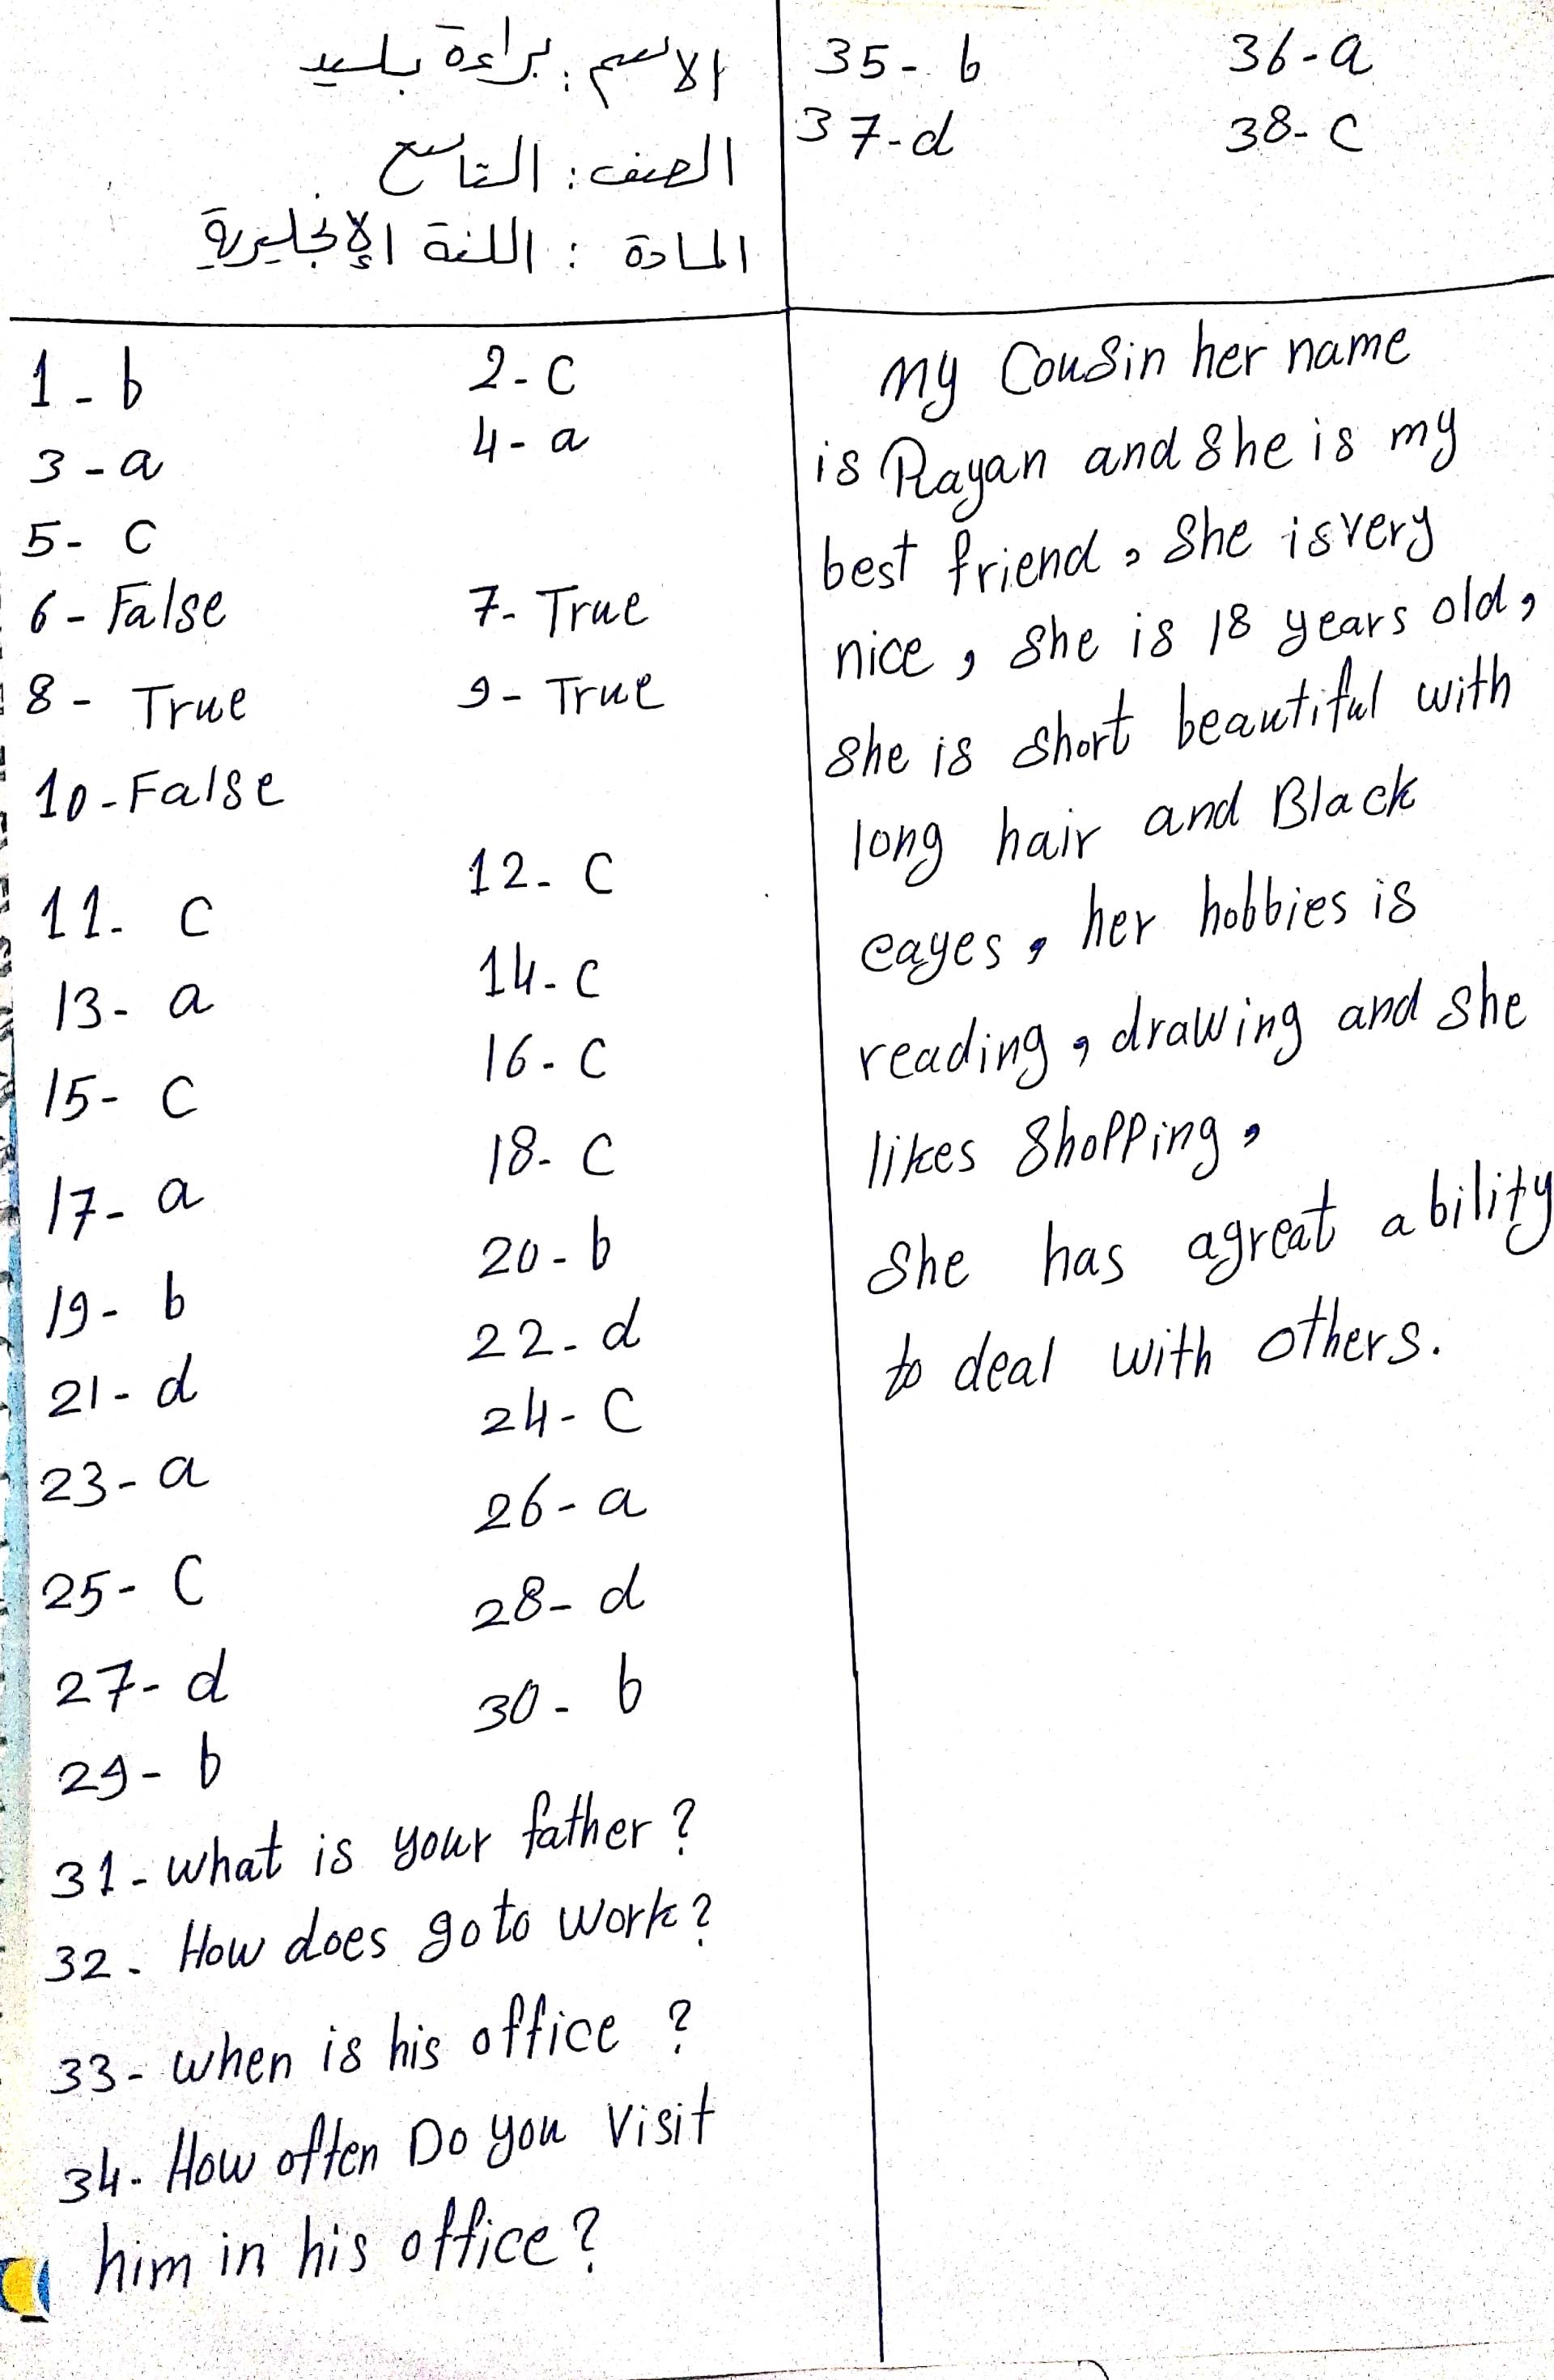 الاسم: براءة بليد
الصف: التاسع
المادة: اللغة الإنجليزية
35- b 36-a
37-d 38-c
1-b 2-c
3-a 4-a
5- c
6- False 7- True
8- True 9- True
10-False
11- c 12- c
13- a 14-c
15- c 16-c
17- a 18- c
19- b 20-b
21-d 22-d
23-a 24-c
25- c 26-a
27-d 28-d
29-b 30- b
31- what is your father?
32- How does go to work?
33- when is his office ?
34- How often Do you Visit
him in his office?
my Cousin her name
is Rayan and She is my
best friend, She is very
nice, She is 18 years old,
She is short beautiful with
long hair and Black
eayes, her hobbies is
reading, drawing and She
likes Shopping,
She has agreat ability
to deal with others.